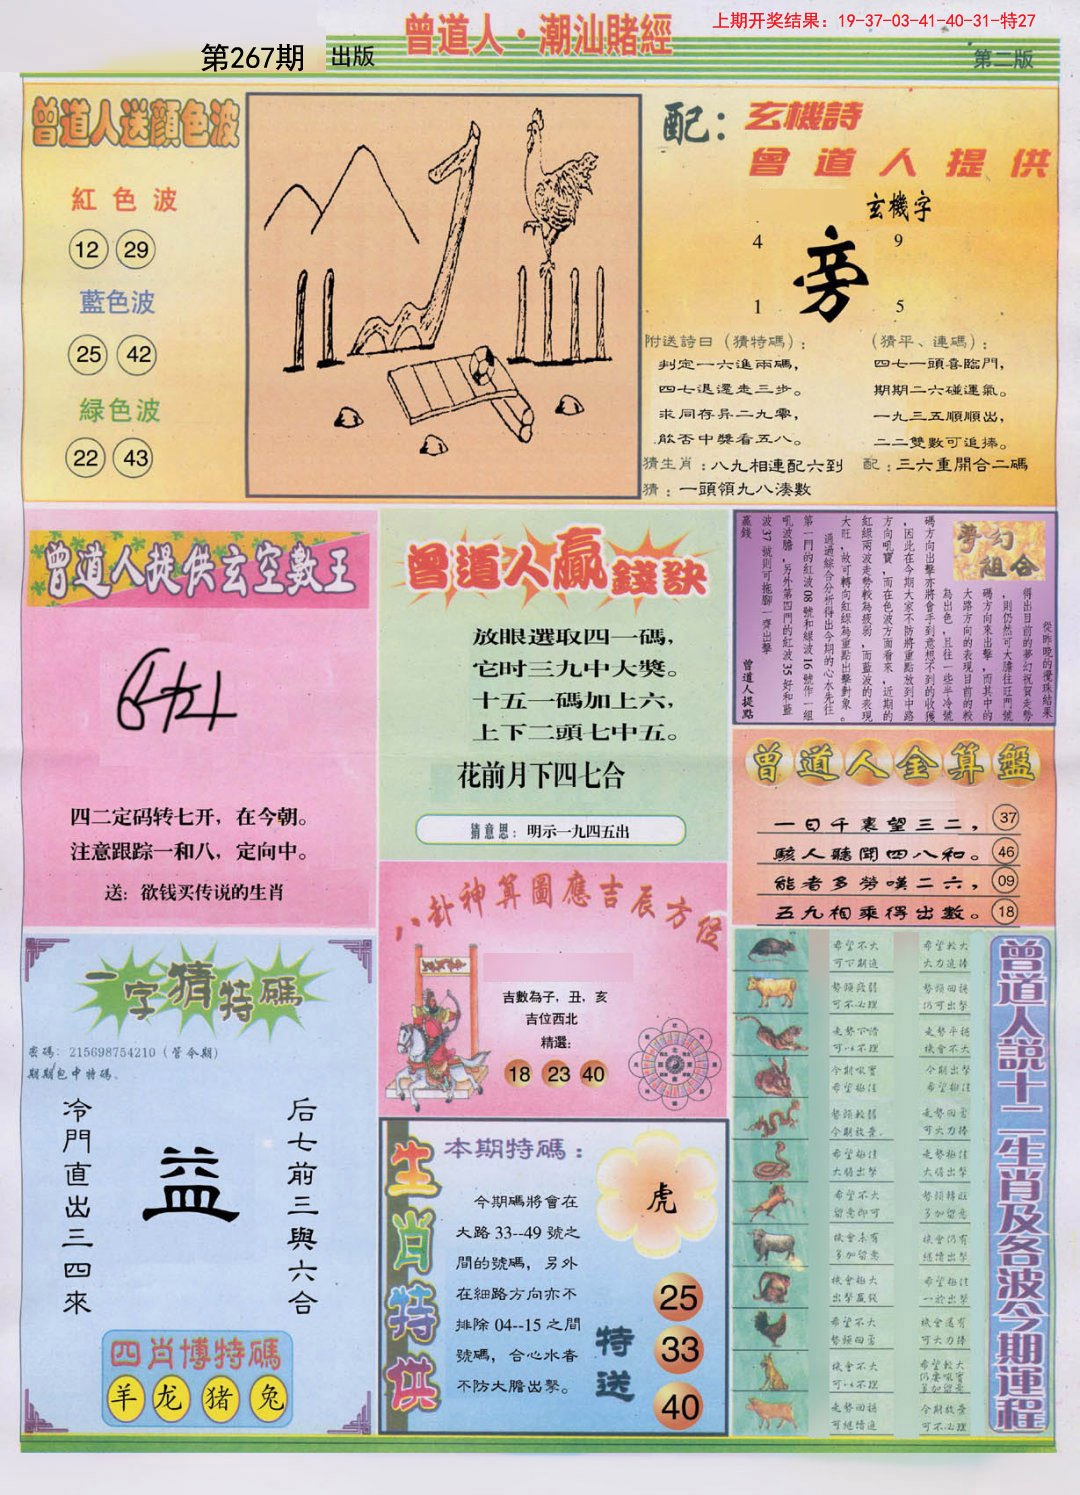 上期开奖结果：19-37-03-41-40-31-特27
曾道人·潮汕賭經
第267期 出版
第二版
曾道人送顏色波
紅色波
12 29
藍色波
25 42
緑色波
22 43
配：玄機詩
曾道人提供
玄機字
4 9
旁
1 5
附送詩曰（猜特碼）：
判定一六進兩碼，
四七退還走三步。
求同存异二九零，
能否中獎看五八。
（猜平、連碼）：
四七一頭喜臨門，
期期二六碰運氣。
一九三五順順出，
二二雙數可追捧。
猜生肖：八九相連配六到
配：三六重開合二碼
猜：一頭領九八湊數
曾道人提供玄空數王
四二定码转七开，在今朝。
注意跟踪一和八，定向中。
送：欲钱买传说的生肖
曾道人贏錢訣
放眼選取四一碼，
它时三九中大獎。
十五一碼加上六，
上下二頭七中五。
花前月下四七合
猜意思：明示一九四五出
夢幻組合
從昨晚的攪珠結果
得出目前的夢幻祝賀走勢
，則仍然可大膽往旺門號
碼方向來出擊，而其中的
大路方向的表現目前的較
為出色，且往一些半冷號
碼方向出擊亦將會手到意想不到的收獲
，因此在今期大家不防將重點放到中路
方向吼寶，而在色波方面看來，近期的
紅綠兩波走勢較為疲弱，而藍波的表現
大旺，故可轉向紅綠為重點出擊對象。
通過綜合分析得出今期的心水先往
第一門的紅波08號和綠波16號作一組
吼波膽，另外第四門的紅波35好和藍
波37號則可拖腳一齊出擊
贏錢
曾道人提點
曾道人金算盤
一日千裏望三二， 37
駭人聽聞四八和。 46
能者多勞嘆二六， 09
五九相乘得出數。 18
八卦神算圖應吉辰方位
吉數為子，丑，亥
吉位西北
精選：
18 23 40
一字猜特碼
密碼：215698754210（管今期）
期期包中特碼、
冷門直出三四來
益
后七前三與六合
四肖博特碼
羊 龙 猪 兔
生肖特供
本期特碼：
今期碼將會在
大路33--49號之
間的號碼，另外
在細路方向亦不
排除04--15之間
號碼，合心水者
不防大膽出擊。
虎
特送
25
33
40
曾道人說十二生肖及各波今期運程
希望不大
可下期追
希望較大
大力追捧
勢頭疲弱
可不必理
勢頭回揚
仍可出擊
走勢下滑
可以不理
走勢平穩
機會不大
今期吼寶
希望極佳
今期出擊
希望極佳
勢頭較弱
今期放棄.
走勢回勇
可大力捧
希望極佳
大膽出擊
走勢極佳
大膽出擊
希望不大
留意即可
勢頭轉旺
多加留意
機會未有
多加留意
機會仍有
繼續出擊
機會極大
出擊贏錢
希望極佳
一於出擊
希望不大
勢頭回勇
機會還有
可大力捧
機會不大
可以不理
希望較大
仍要吼實
多加留意
走勢回穩
可繼續追
今期放棄
可不必理